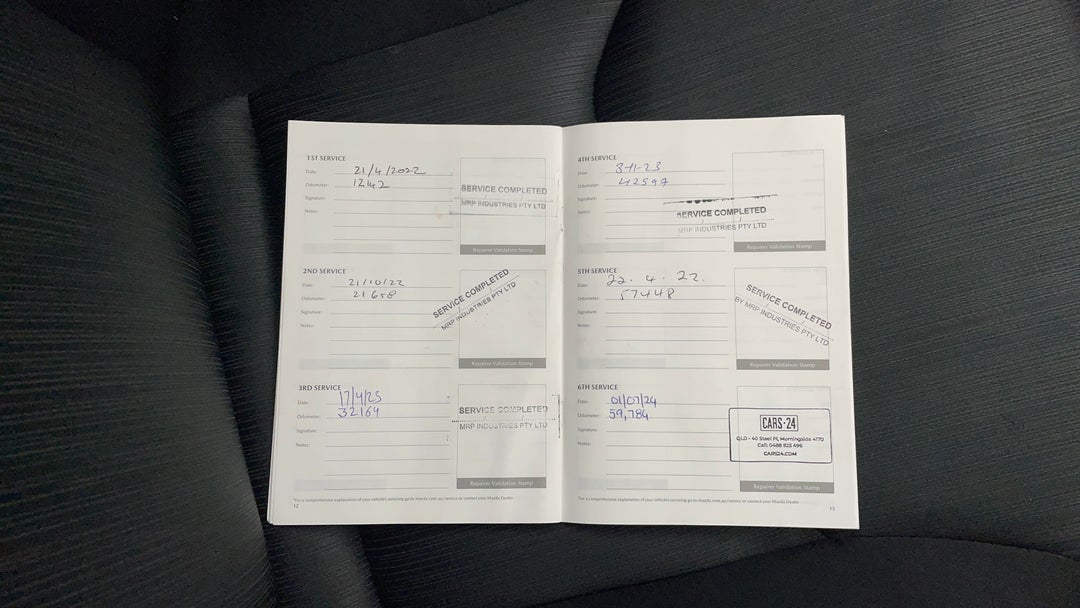 1ST SERVICE
Date: 21/4/2022
Odometer: 1242
Signature:
Notes:
SERVICE COMPLETED
MRP INDUSTRIES PTY LTD
Repairer Validation Stamp
2ND SERVICE
Date: 21/10/22
Odometer: 21658
Signature:
Notes:
SERVICE COMPLETED
MRP INDUSTRIES PTY LTD
Repairer Validation Stamp
3RD SERVICE
Date: 17/4/23
Odometer: 32164
Signature:
Notes:
SERVICE COMPLETED
MRP INDUSTRIES PTY LTD
Repairer Validation Stamp
*For a comprehensive explanation of your vehicle's servicing go to mazda.com.au/service or contact your Mazda Dealer
12
4TH SERVICE
Date:
Odometer: 42597
Signature:
Notes:
SERVICE COMPLETED
MRP INDUSTRIES PTY LTD
Repairer Validation Stamp
5TH SERVICE
Date: 22.4.22.
Odometer: 57448
Signature:
Notes:
SERVICE COMPLETED
BY MRP INDUSTRIES PTY LTD
Repairer Validation Stamp
6TH SERVICE
Date: 01/07/24
Odometer: 59,784
Signature:
Notes:
CARS·24
QLD - 40 Steel Pl, Morningside 4170
Call: 0488 825 496
CARS24.COM
Repairer Validation Stamp
*For a comprehensive explanation of your vehicle's servicing go to mazda.com.au/service or contact your Mazda Dealer
13